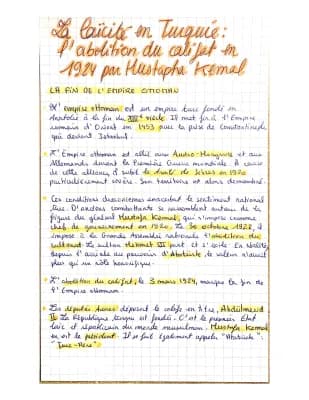 La laïcité en Turquie:
l'abolition du califat en
1924 par Mustapha Kemal
LA FIN DE L'EMPIRE OTTOMAN
L'empire ottoman est un empire turc fondé en
Anatolie à la fin du XIIIe siècle. Il met fin à l'Empire
romain d'Orient en 1453 avec la prise de Constantinople
qui devient Istanbul.
L'Empire ottoman est allié aux Austro-Hongrois et aux
Allemands durant la Première Guerre mondiale. À cause
de cette alliance, il subit le traité de Sèvres en 1920
particulièrement sévère. Son territoire est alors démembré.
Ces conditions désastreuses exacerbent le sentiment national
turc. D'anciens combattants se rassemblent autour de la
figure du général Mustafa Kemal, qui s'impose comme
chef de gouvernement en 1920. Le 30 octobre 1922, il
impose à la Grande Assemblée nationale l'abolition du
sultanat. Le sultan Mehmet VI part et s'exile. En réalité,
depuis l'arrivée au pouvoir d'Atatürk, le sultan n'avait
plus qu'un rôle honorifique.
L'abolition du califat, le 3 mars 1924, marque la fin de
l'Empire ottoman.
Les députés turcs déposent le calife en titre, Abdülmecid
II. La République turque est fondée. C'est le premier État
laïc et républicain du monde musulman. Mustafa Kemal
en est le président. Il se fait également appeler "Atatürk":
"Turc-Père".